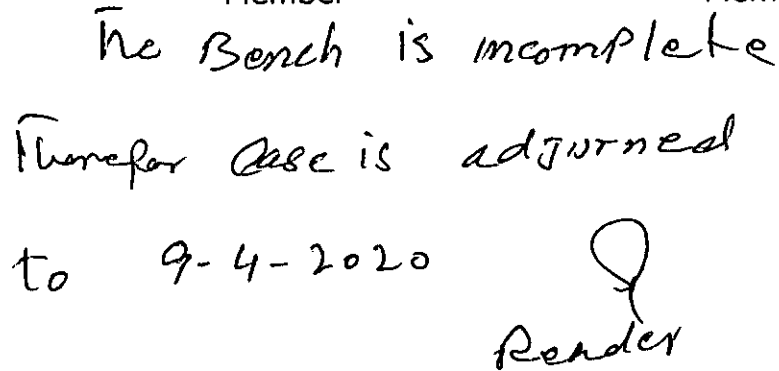 Member
The Bench is incomplete
Therefor Case is adjurned
to 9-4-2020
Reader